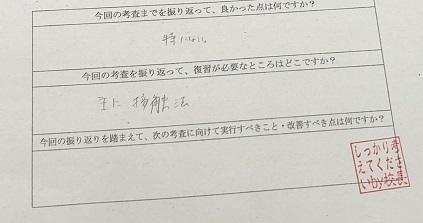 今回の考査までを振り返って、良かった点は何ですか?
特にない。
今回の考査を振り返って、復習が必要なところはどこですか?
主に 接触法
今回の振り返りを踏まえて、次の考査に向けて実行すべきこと・改善すべき点は何ですか?
しっかり考
えてくださ
いby校長